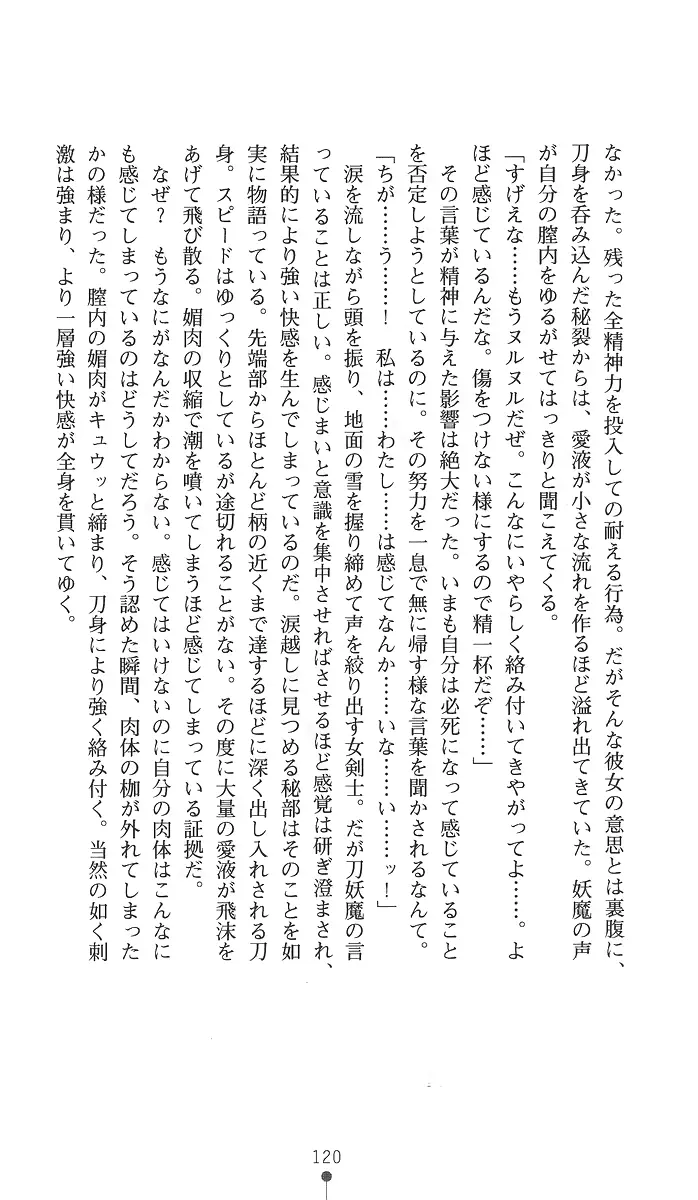 なかった。残った全精神力を投入しての耐える行為。だがそんな彼女の意思とは裏腹に、
刀身を呑み込んだ秘裂からは、愛液が小さな流れを作るほど溢れ出てきていた。妖魔の声
が自分の膣内をゆるがせてはっきりと聞こえてくる。
「すげえな……もうヌルヌルだぜ。こんなにいやらしく絡み付いてきやがってよ……。よ
ほど感じているんだな。傷をつけない様にするので精一杯だぞ……」
その言葉が精神に与えた影響は絶大だった。いまも自分は必死になって感じていること
を否定しようとしているのに。その努力を一息で無に帰す様な言葉を聞かされるなんて。
「ちが……う……！　私は……わたし……は感じてなんか……いな……い……ッ！」
涙を流しながら頭を振り、地面の雪を握り締めて声を絞り出す女剣士。だが刀妖魔の言
っていることは正しい。感じまいと意識を集中させればさせるほど感覚は研ぎ澄まされ、
結果的により強い快感を生んでしまっているのだ。涙越しに見つめる秘部はそのことを如
実に物語っている。先端部からほとんど柄の近くまで達するほどに深く出し入れされる刀
身。スピードはゆっくりとしているが途切れることがない。その度に大量の愛液が飛沫を
あげて飛び散る。媚肉の収縮で潮を噴いてしまうほど感じてしまっている証拠だ。
なぜ？　もうなにがなんだかわからない。感じてはいけないのに自分の肉体はこんなに
も感じてしまっているのはどうしてだろう。そう認めた瞬間、肉体の枷が外れてしまった
かの様だった。膣内の媚肉がキュウッと締まり、刀身により強く絡み付く。当然の如く刺
激は強まり、より一層強い快感が全身を貫いてゆく。
120